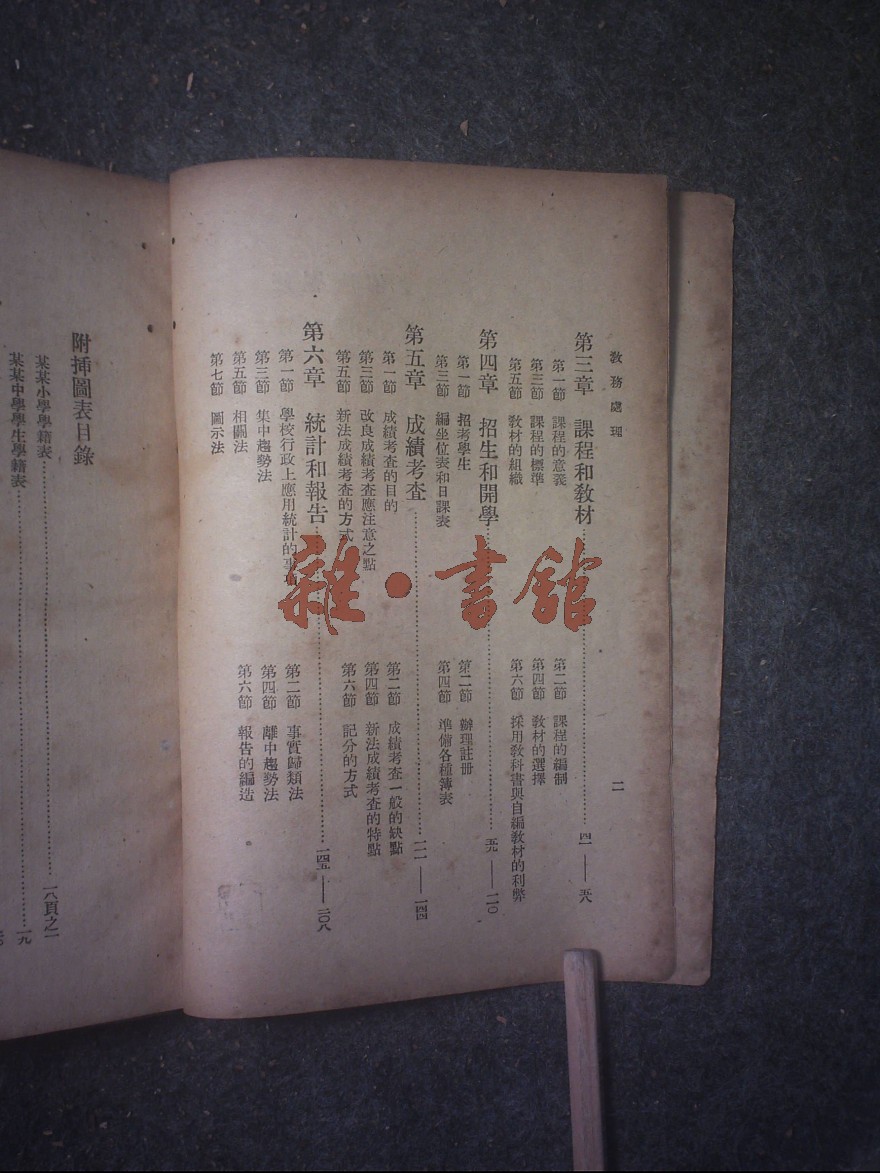 教務處理
二
第三章　課程和教材……四一——五八
第一節　課程的意義　第二節　課程的編制
第三節　課程的標準　第四節　教材的選擇
第五節　教材的組織　第六節　採用教科書與自編教材的利弊
第四章　招生和開學……五九——一一〇
第一節　招考學生　第二節　辦理註冊
第三節　編坐位表和日課表　第四節　準備各種簿表
第五章　成績考查……一一一——一四四
第一節　成績考查的目的　第二節　成績考查一般的缺點
第三節　改良成績考查應注意之點　第四節　新法成績考查的特點
第五節　新法成績考查的方式　第六節　記分的方式
第六章　統計和報告……一四五——二〇八
第一節　學校行政上應用統計的事項　第二節　事實歸類法
第三節　集中趨勢法　第四節　離中趨勢法
第五節　相關法　第六節　報告的編造
第七節　圖示法
附插圖表目錄
某某小學學籍表……一八頁之一
某某中學學生學籍表……一九
雜·書館